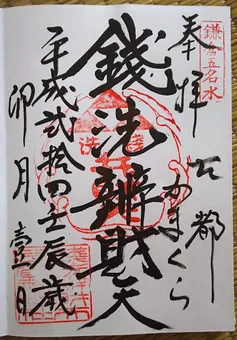 鎌倉五名水
奉拝
古都
かまくら
銭洗辨財天
平成弐拾四壬辰歳
卯月
壹日